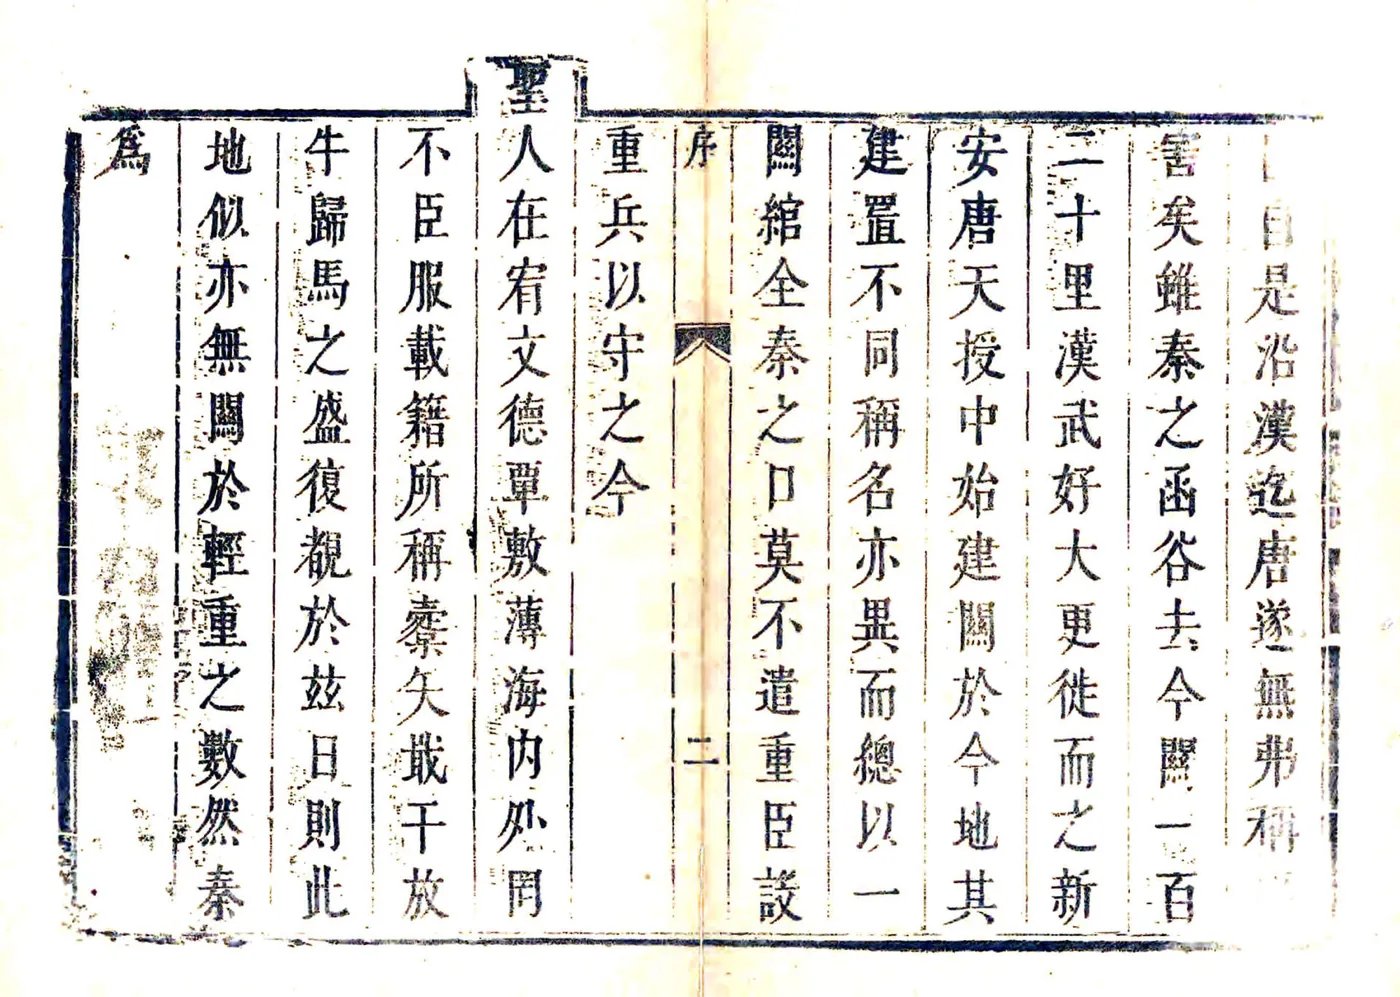 自是沿漢迄唐遂無弗稱
害矣雖秦之函谷去今關一百
二十里漢武好大更徙而之新
安唐天授中始建關於今地其
建置不同稱名亦異而總以一
關綰全秦之口莫不遣重臣設
序 二
重兵以守之今
聖人在宥文德覃敷薄海内外罔
不臣服載籍所稱櫜矢戢干放
牛歸馬之盛復覩於兹日則此
地似亦無關於輕重之數然秦
爲